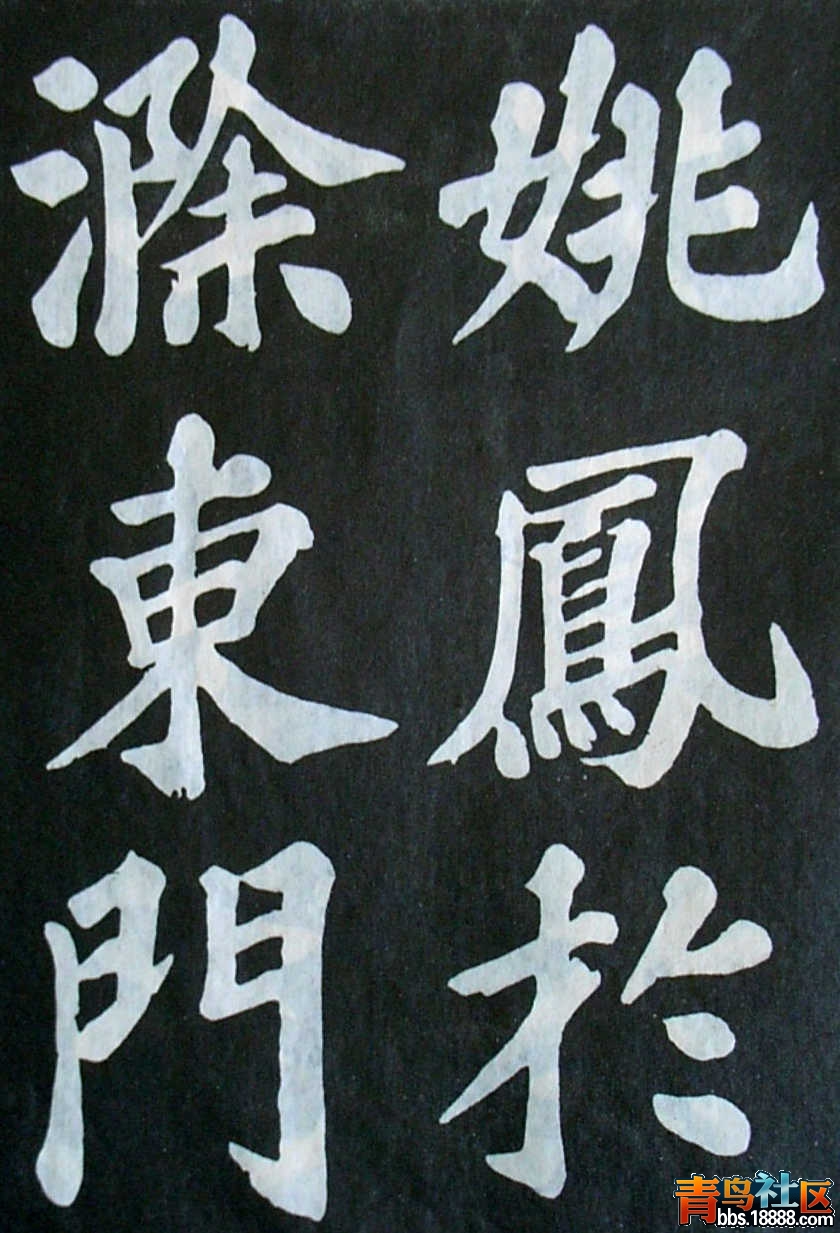 姚鳳於
滁東門
青鸟社区
bbs.18888.com